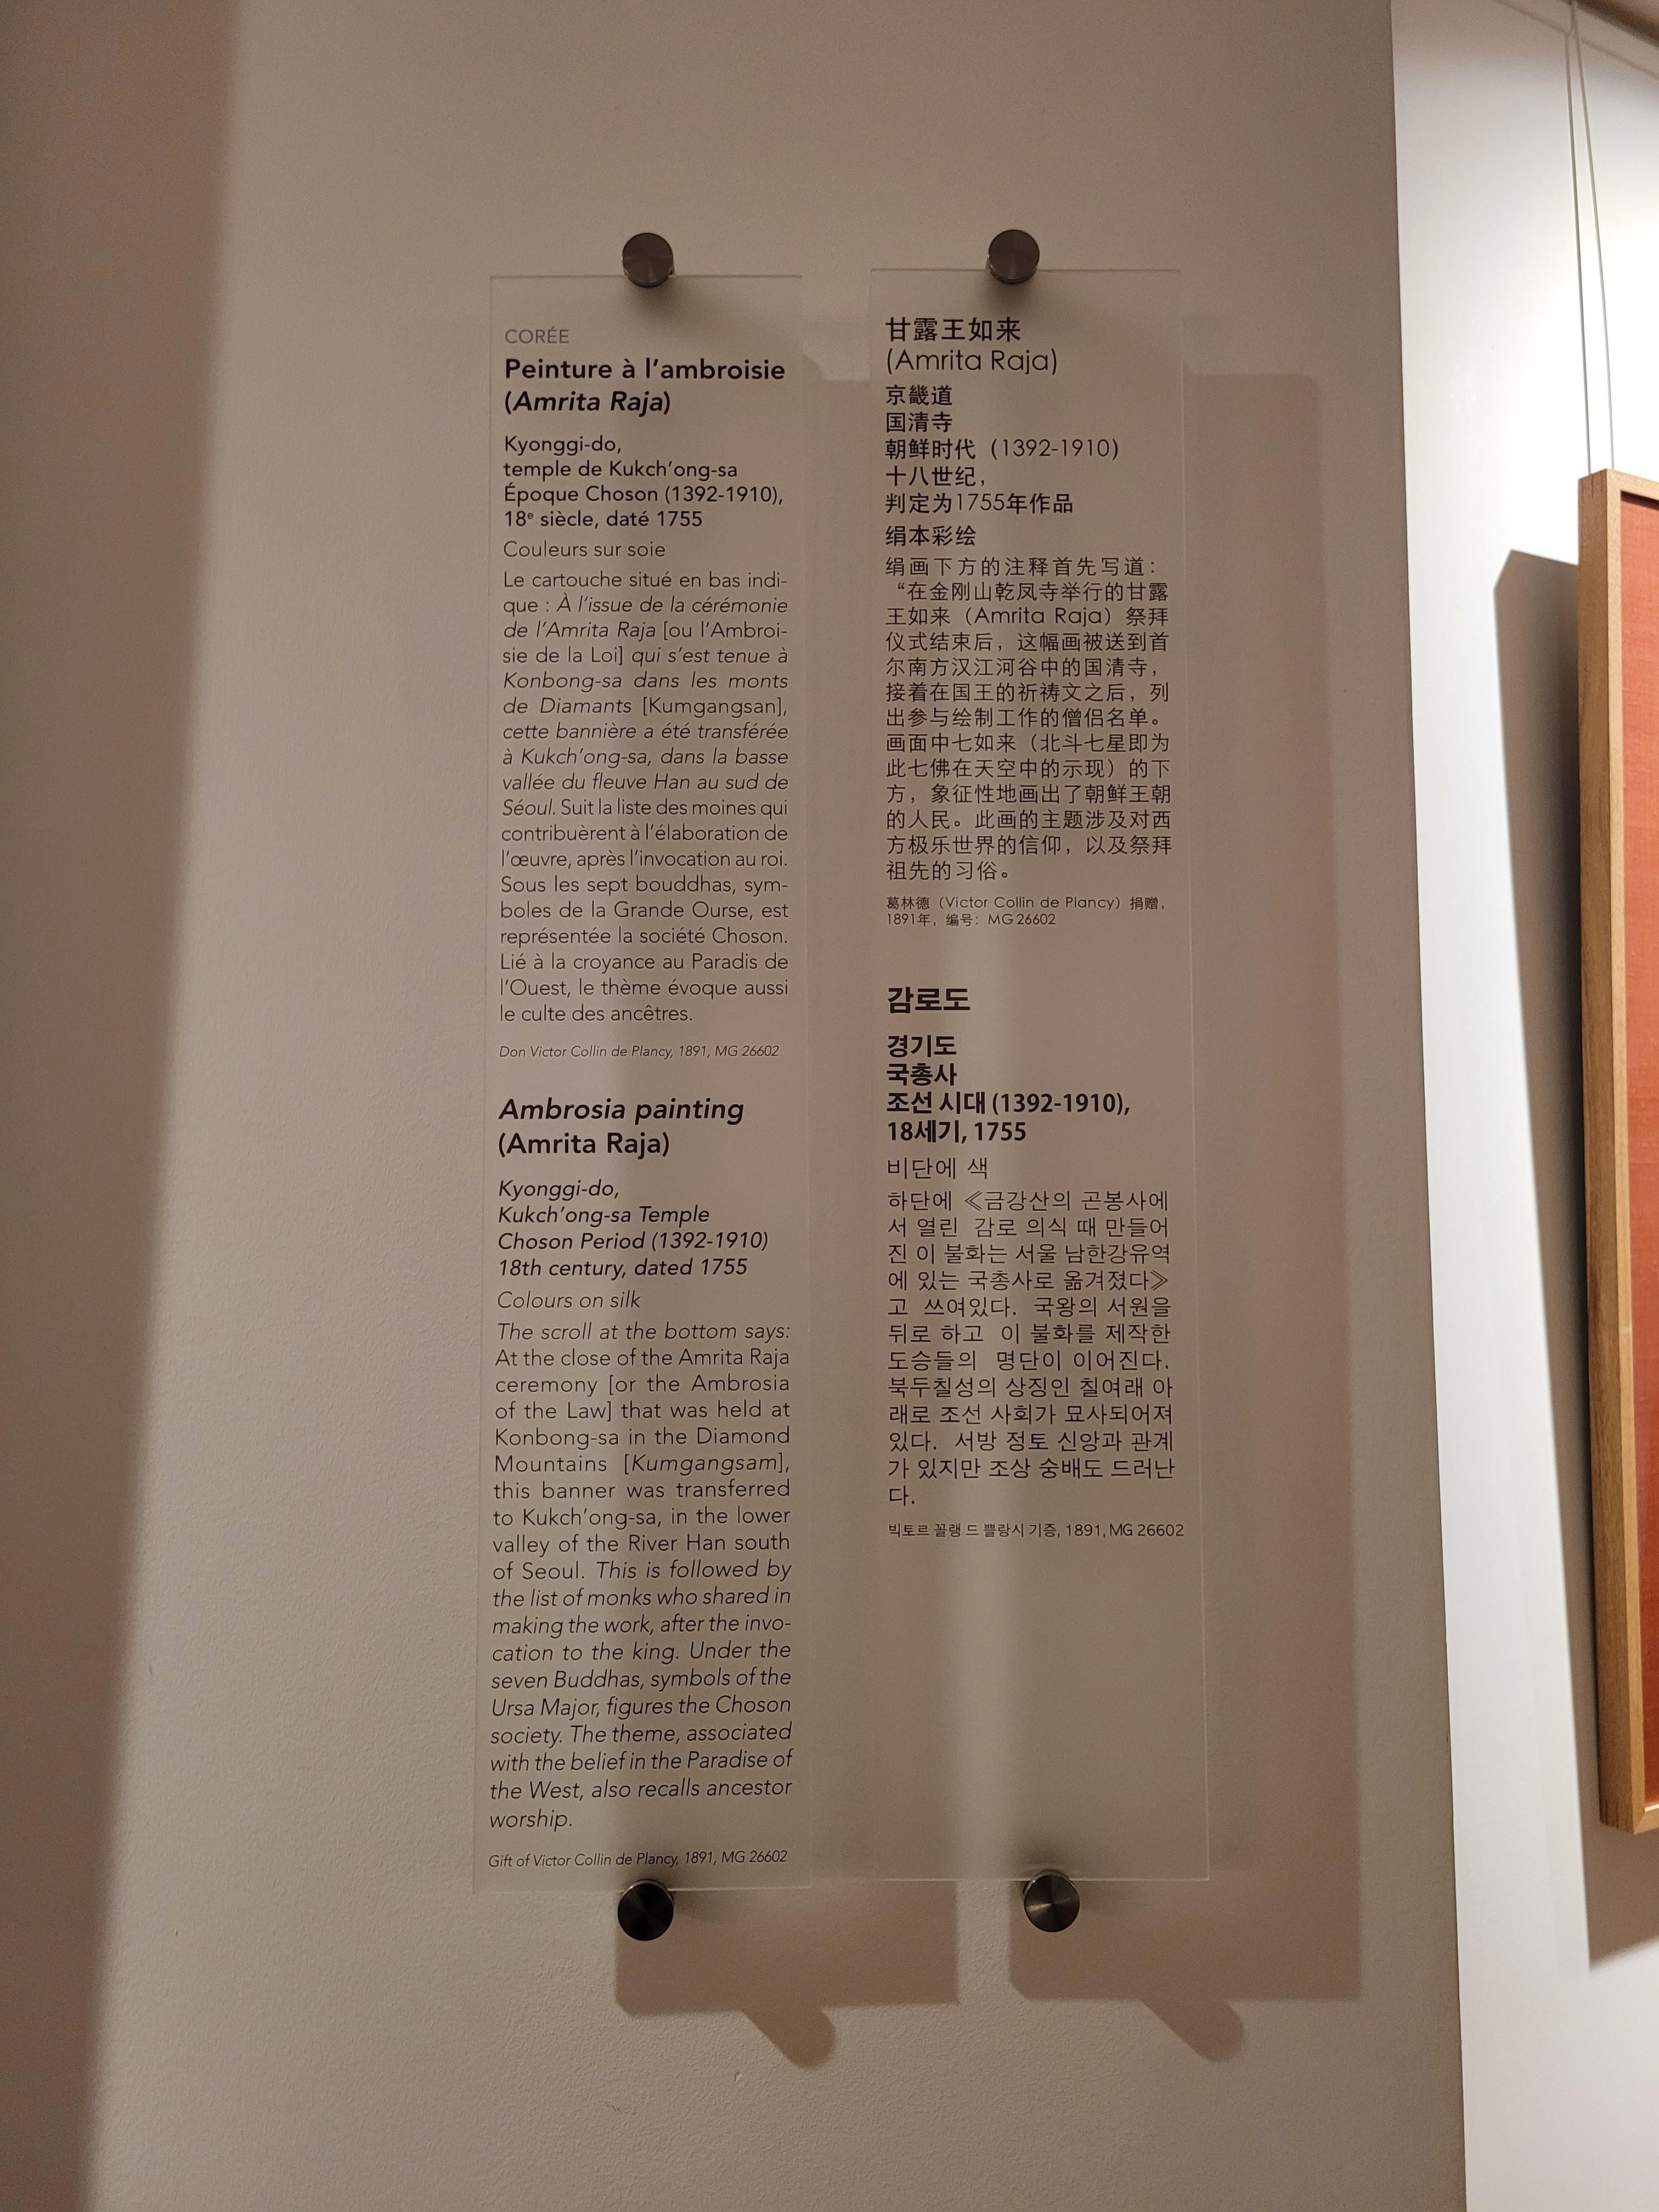 CORÉE
Peinture à l’ambroisie
(Amrita Raja)
Kyonggi-do,
temple de Kukch’ong-sa
Époque Choson (1392-1910),
18e siècle, daté 1755
Couleurs sur soie
Le cartouche situé en bas indi-
que : À l’issue de la cérémonie
de l’Amrita Raja [ou l’Ambroi-
sie de la Loi] qui s’est tenue à
Konbong-sa dans les monts
de Diamants [Kumgangsan],
cette bannière a été transférée
à Kukch’ong-sa, dans la basse
vallée du fleuve Han au sud de
Séoul. Suit la liste des moines qui
contribuèrent à l’élaboration de
l’œuvre, après l’invocation au roi.
Sous les sept bouddhas, sym-
boles de la Grande Ourse, est
représentée la société Choson.
Lié à la croyance au Paradis de
l’Ouest, le thème évoque aussi
le culte des ancêtres.
Don Victor Collin de Plancy, 1891, MG 26602
Ambrosia painting
(Amrita Raja)
Kyonggi-do,
Kukch’ong-sa Temple
Choson Period (1392-1910)
18th century, dated 1755
Colours on silk
The scroll at the bottom says:
At the close of the Amrita Raja
ceremony [or the Ambrosia
of the Law] that was held at
Konbong-sa in the Diamond
Mountains [Kumgangsam],
this banner was transferred
to Kukch’ong-sa, in the lower
valley of the River Han south
of Seoul. This is followed by
the list of monks who shared in
making the work, after the invo-
cation to the king. Under the
seven Buddhas, symbols of the
Ursa Major, figures the Choson
society. The theme, associated
with the belief in the Paradise of
the West, also recalls ancestor
worship.
Gift of Victor Collin de Plancy, 1891, MG 26602
甘露王如来
(Amrita Raja)
京畿道
国清寺
朝鲜时代（1392-1910）
十八世纪，
判定为1755年作品
绢本彩绘
绢画下方的注释首先写道：
“在金刚山乾凤寺举行的甘露
王如来（Amrita Raja）祭拜
仪式结束后，这幅画被送到首
尔南方汉江河谷中的国清寺，
接着在国王的祈祷文之后，列
出参与绘制工作的僧侣名单。
画面中七如来（北斗七星即为
此七佛在天空中的示现）的下
方，象征性地画出了朝鲜王朝
的人民。此画的主题涉及对西
方极乐世界的信仰，以及祭拜
祖先的习俗。
葛林德（Victor Collin de Plancy）捐赠，
1891年，编号：MG 26602
감로도
경기도
국총사
조선 시대 (1392-1910),
18세기, 1755
비단에 색
하단에 ≪금강산의 곤봉사에
서 열린 감로 의식 때 만들어
진 이 불화는 서울 남한강유역
에 있는 국총사로 옮겨졌다≫
고 쓰여있다. 국왕의 서원을
뒤로 하고 이 불화를 제작한
도승들의 명단이 이어진다.
북두칠성의 상징인 칠여래 아
래로 조선 사회가 묘사되어져
있다. 서방 정토 신앙과 관계
가 있지만 조상 숭배도 드러난
다.
빅토르 꼴랭 드 쁠랑시 기증, 1891, MG 26602